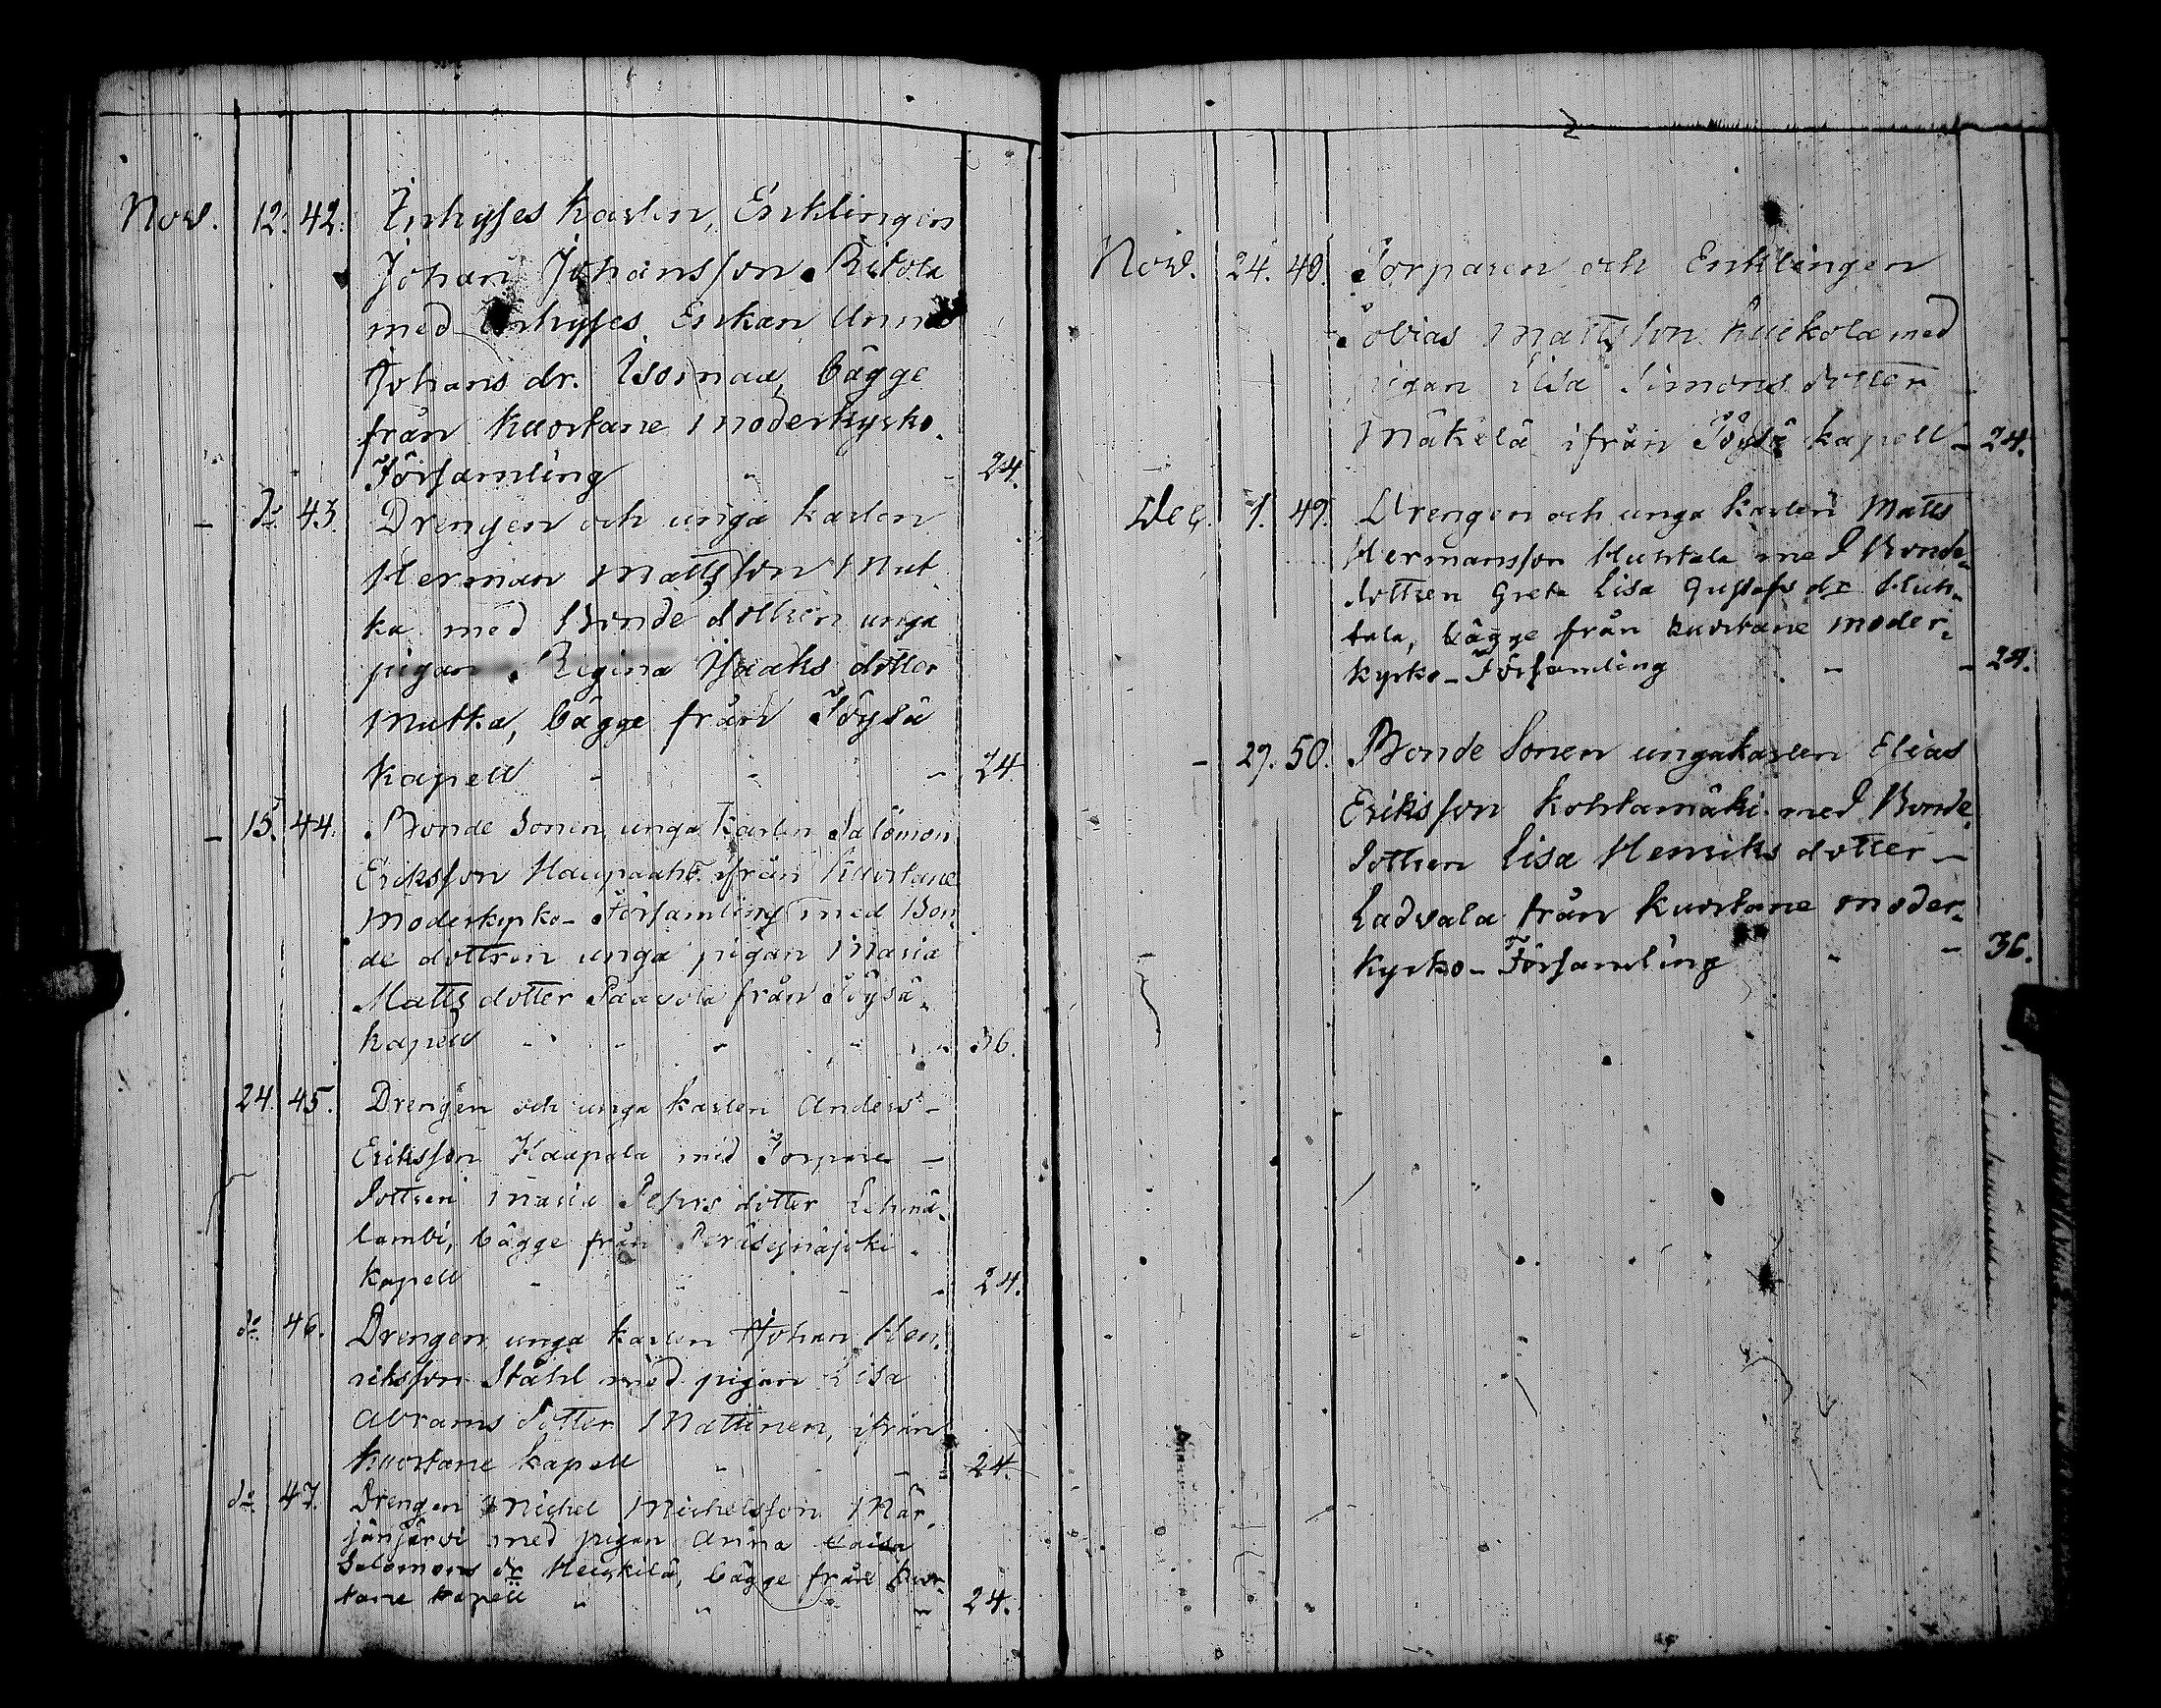 Nov. 12. 42. Inhyses karlen, Enklingen
Johan Johansson Ritola
med Inhyses Enkan Anna
Johans dr. Isoinaa, bägge
från Kuortane Moderkyrko
Församling - - 24.
- do 43. Drengen och unga karlen
Herman Mattsson Mut
ka med Bonde dottren unga
pigan Regina Isaaks dotter
Mutka, bägge från Töysä
Kapell - - - 24
- 15. 44. Bonde Sonen unga karlen Salomon
Eriksson Haapaaho ifrån Kuortane
Moderkyrko- Församling med Bon
de dottren unga pigan Maria
Matts dotter Paavola från Töysä
kapell - - - - - 36.
24. 45. Drengen och unga karlen Anders -
Eriksson Haapala med Torpare -
dottren Maria Pehrs dotter Lehmä
lambi, bägge från Peräseinäjoki
kapell - - - - 24.
do 46. Drengen unga karlen Johan Hen
riksson Ståhl med pigan Lisa
Abrams dotter Mattinen, ifrån
Kuortane kapell - - 24.
do 47. Drengen Michel Michelsson Mär
jänjärvi med pigan Anna Caisa
Salomons dr Heikkilä, bägge från Kuor
tane kapell - - - - 24.
Nov. 24. 48. Torparen och Enklingen
Tobias Mattsson Kuckola med
pigan Lisa Simons dotter
Mäkelä ifrån Töysä kapell - 24.
Dec. 1. 49. Drengen och unga karlen Matts
Hermansson Huhtala med Bonde
dottren Greta Lisa Gustafs dr Huh
tala, bägge från Kuortane moder
kyrko - Församling - - 24.
- 27. 50. Bonde Sonen ungakarlen Elias
Eriksson Kohtamäki med Bonde
dottren Lisa Henriks dotter -
Ladvala från Kuortane moder
kyrko - Församling - - 36.